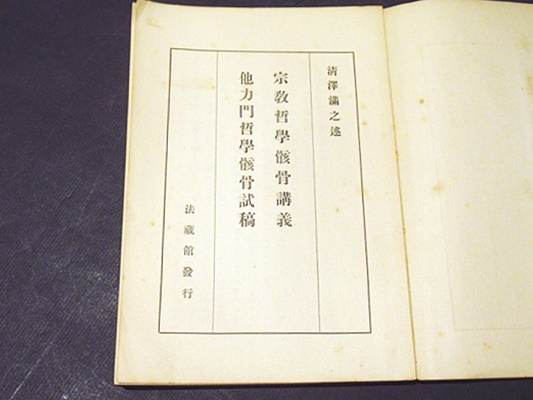 清澤滿之述
宗敎哲學骸骨講義
他力門哲學骸骨試稿
法藏館發行